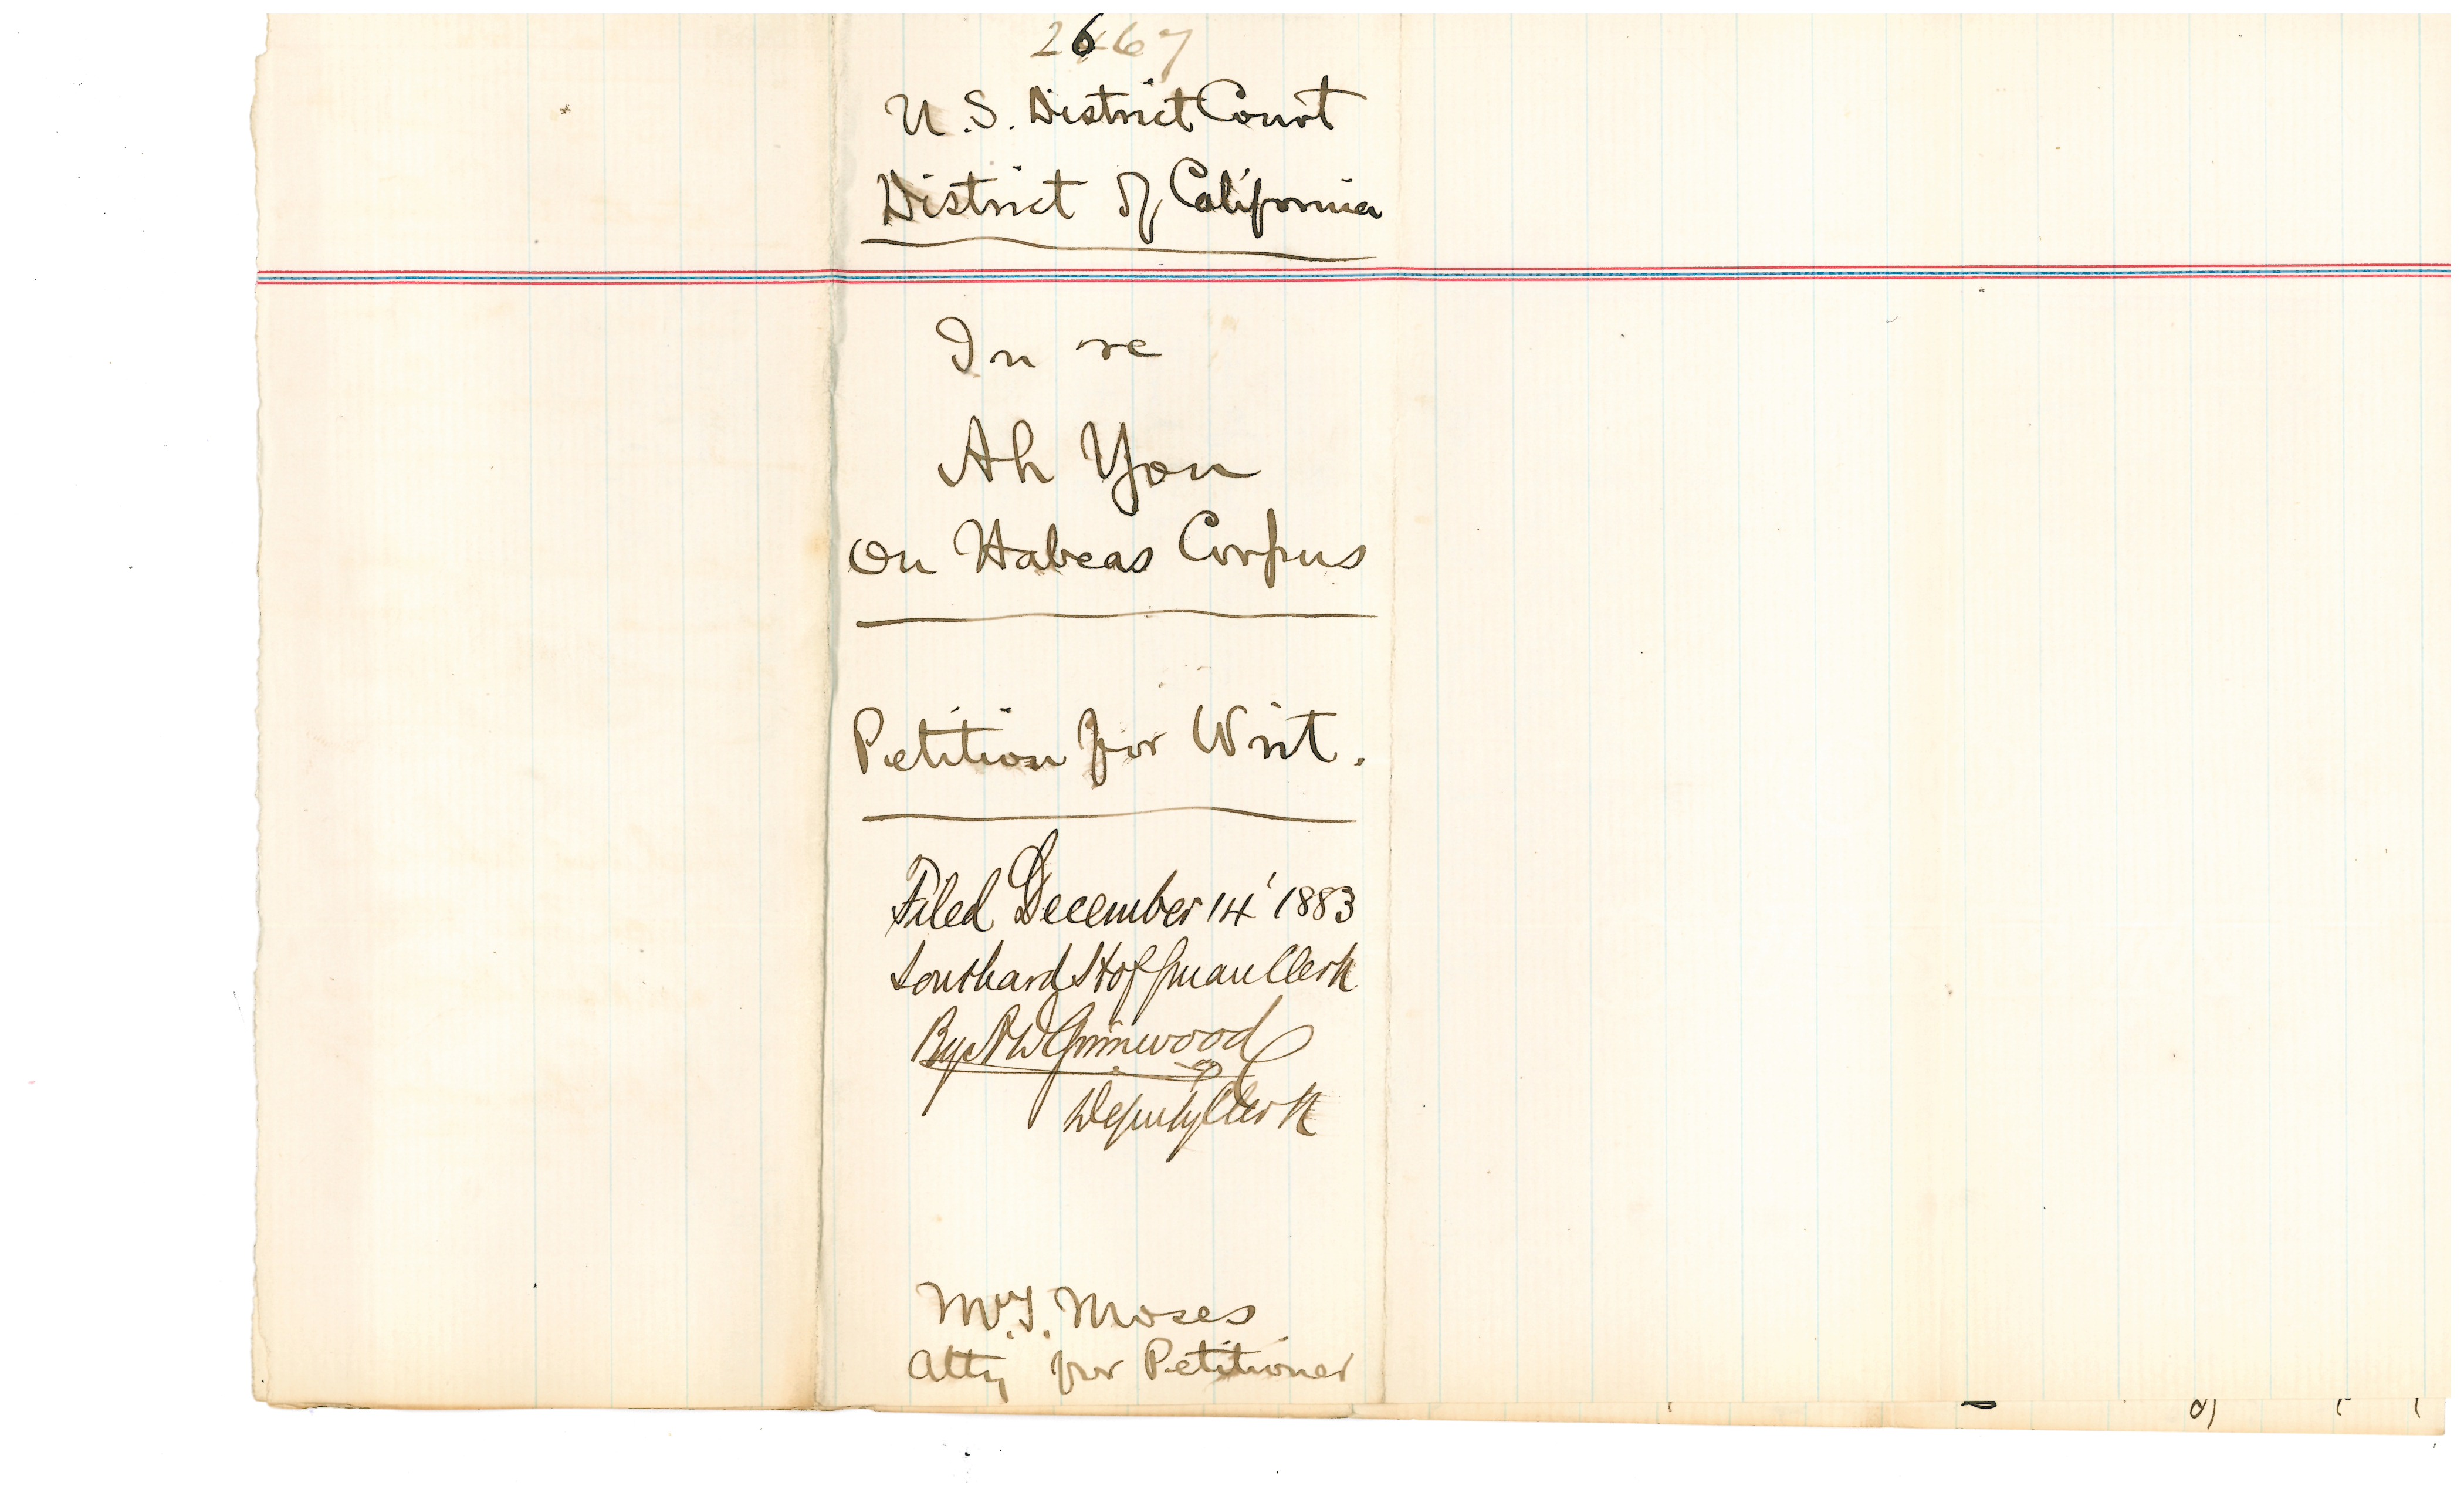 2667
U.S. District Court
District of California
In re
Ah You
On Habeas Corpus
Petition for Writ.
Filed December 14' 1883
Southard Hoffman Clerk
By Grimwood
Deputy Clerk
M.T. Moses
Atty for Petitioner